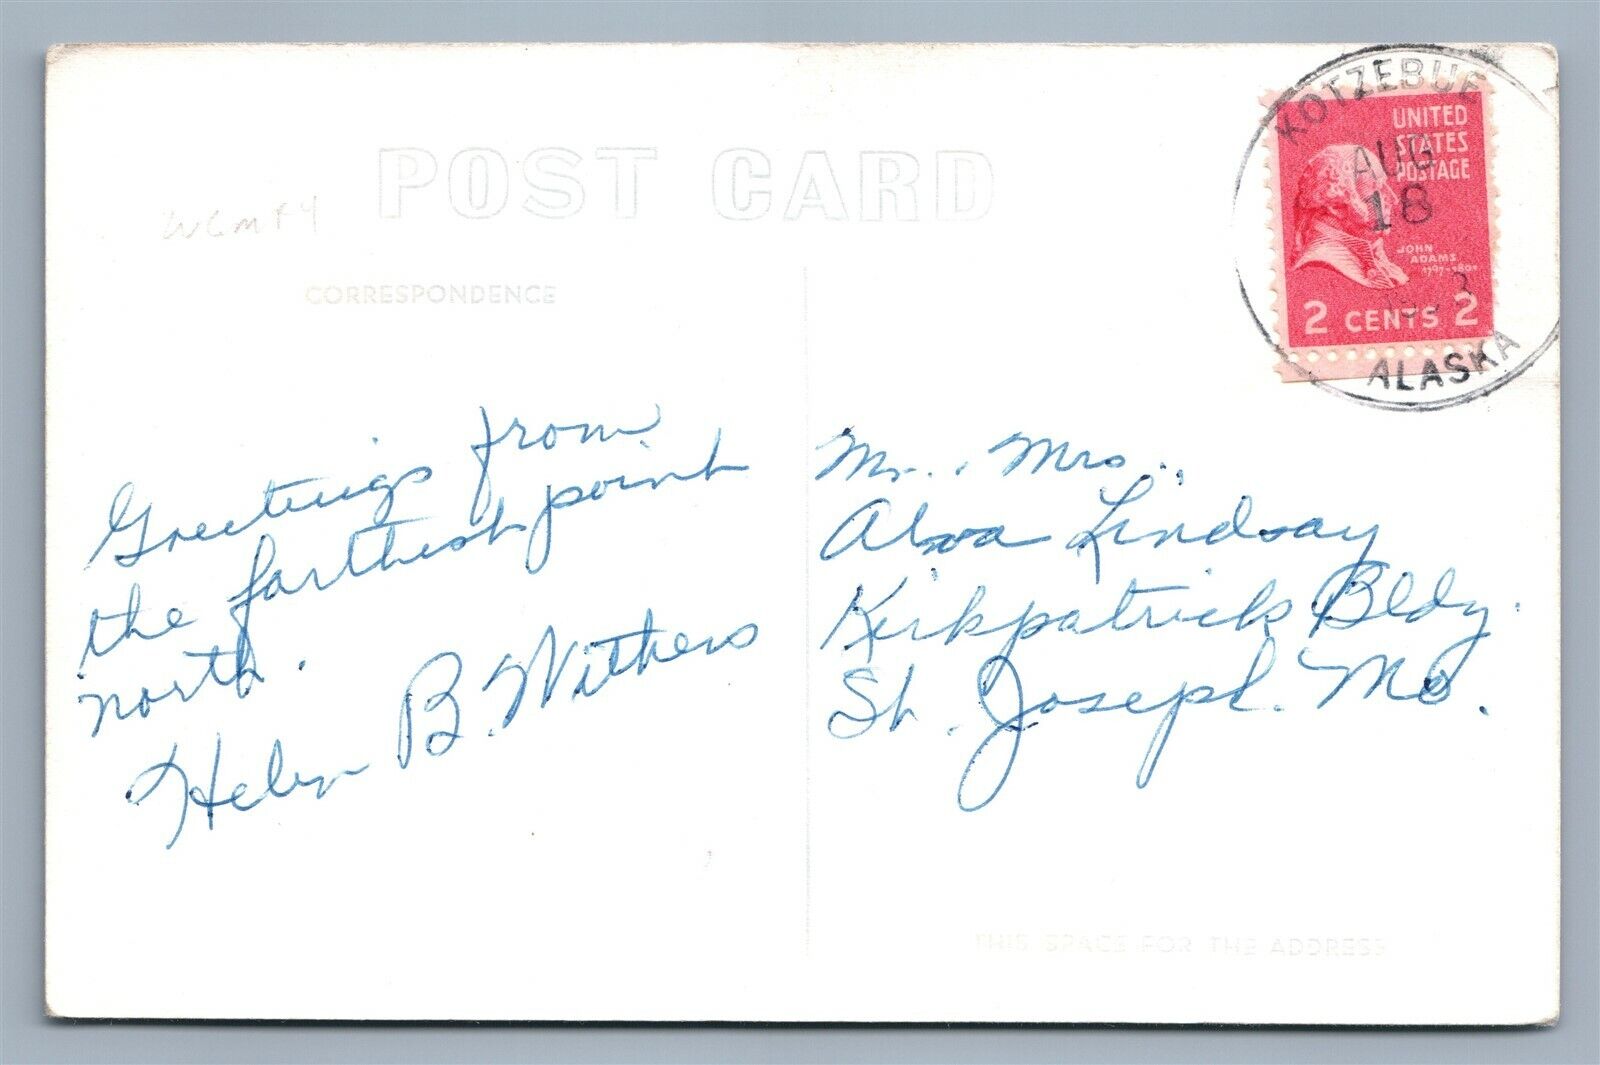 POST CARD
CORRESPONDENCE
KOTZEBUE
AUG
18
ALASKA
UNITED
STATES
POSTAGE
JOHN
ADAMS
2 CENTS 2
Greetings from
the farthest point
north.
Helen B. Withers
Mr., Mrs.,
Alva Lindsay
Kirkpatrick Bldg.
St. Joseph. Mo.
THIS SPACE FOR THE ADDRESS